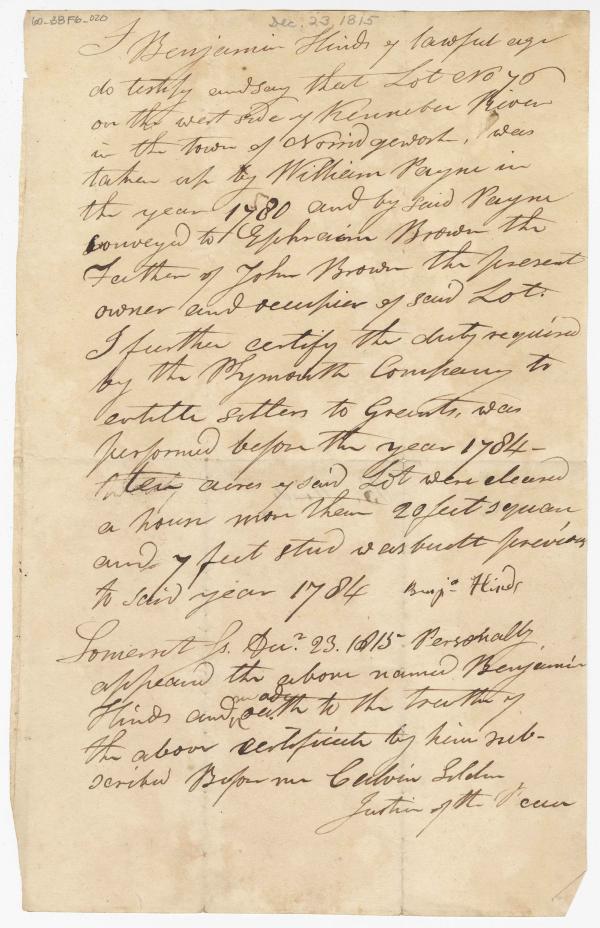 60-3BF6-020
Dec. 23, 1815
I Benjamin Hinds of lawful age
do testify and say that Lot No 70
on the west side of Kennebec River
in the town of Norridgewock, was
taken up by William Payne in
the year 1780 and by said Payne
conveyed to Ephraim Brown the
Father of John Brown the present
owner and occupier of said Lot.
I further certify the duty required
by the Plymouth Company to
entitle settlers to Grants, was
performed before the year 1784-
ten acres of said Lot were cleared
a house more than 20 feet square
and 7 feet stud was built previous
to said year 1784 Benja. Hinds
Somerset Ss. Decr. 23. 1815 Personally
appeared the above named Benjamin
Hinds and made oath to the truth of
the above certificate by him sub-
scribed Before me Calvin Selden
Justice of the Peace